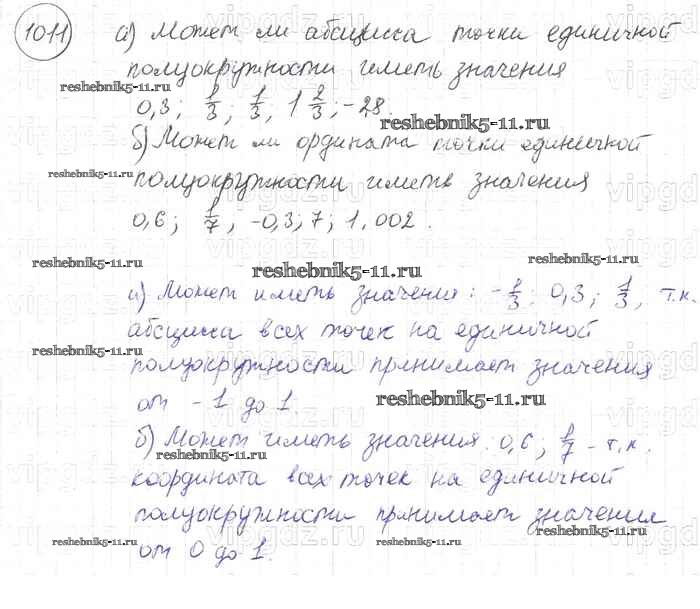 1011 а) Может ли абсцисса точки единичной
полуокружности иметь значения
reshebnik5-11.ru
0,3; 1/3; 1/3; 1 2/3; -28.
reshebnik5-11.ru
б) Может ли ордината точки единичной
reshebnik5-11.ru
полуокружности иметь значения
0,6; 1/7, -0,3; 7; 1,002.
reshebnik5-11.ru reshebnik5-11.ru
reshebnik5-11.ru
а) Может иметь значения: -1/3; 0,3; 1/3, т.к.
абсцисса всех точек на единичной
reshebnik5-11.ru
полуокружности принимает значения
от -1 до 1.
reshebnik5-11.ru
б) Может иметь значения: 0,6; 1/7 - т.к.
reshebnik5-11.ru
координата всех точек на единичной
полуокружности принимает значения
reshebnik5-11.ru от 0 до 1. reshebnik5-11.ru reshebnik5-11.ru